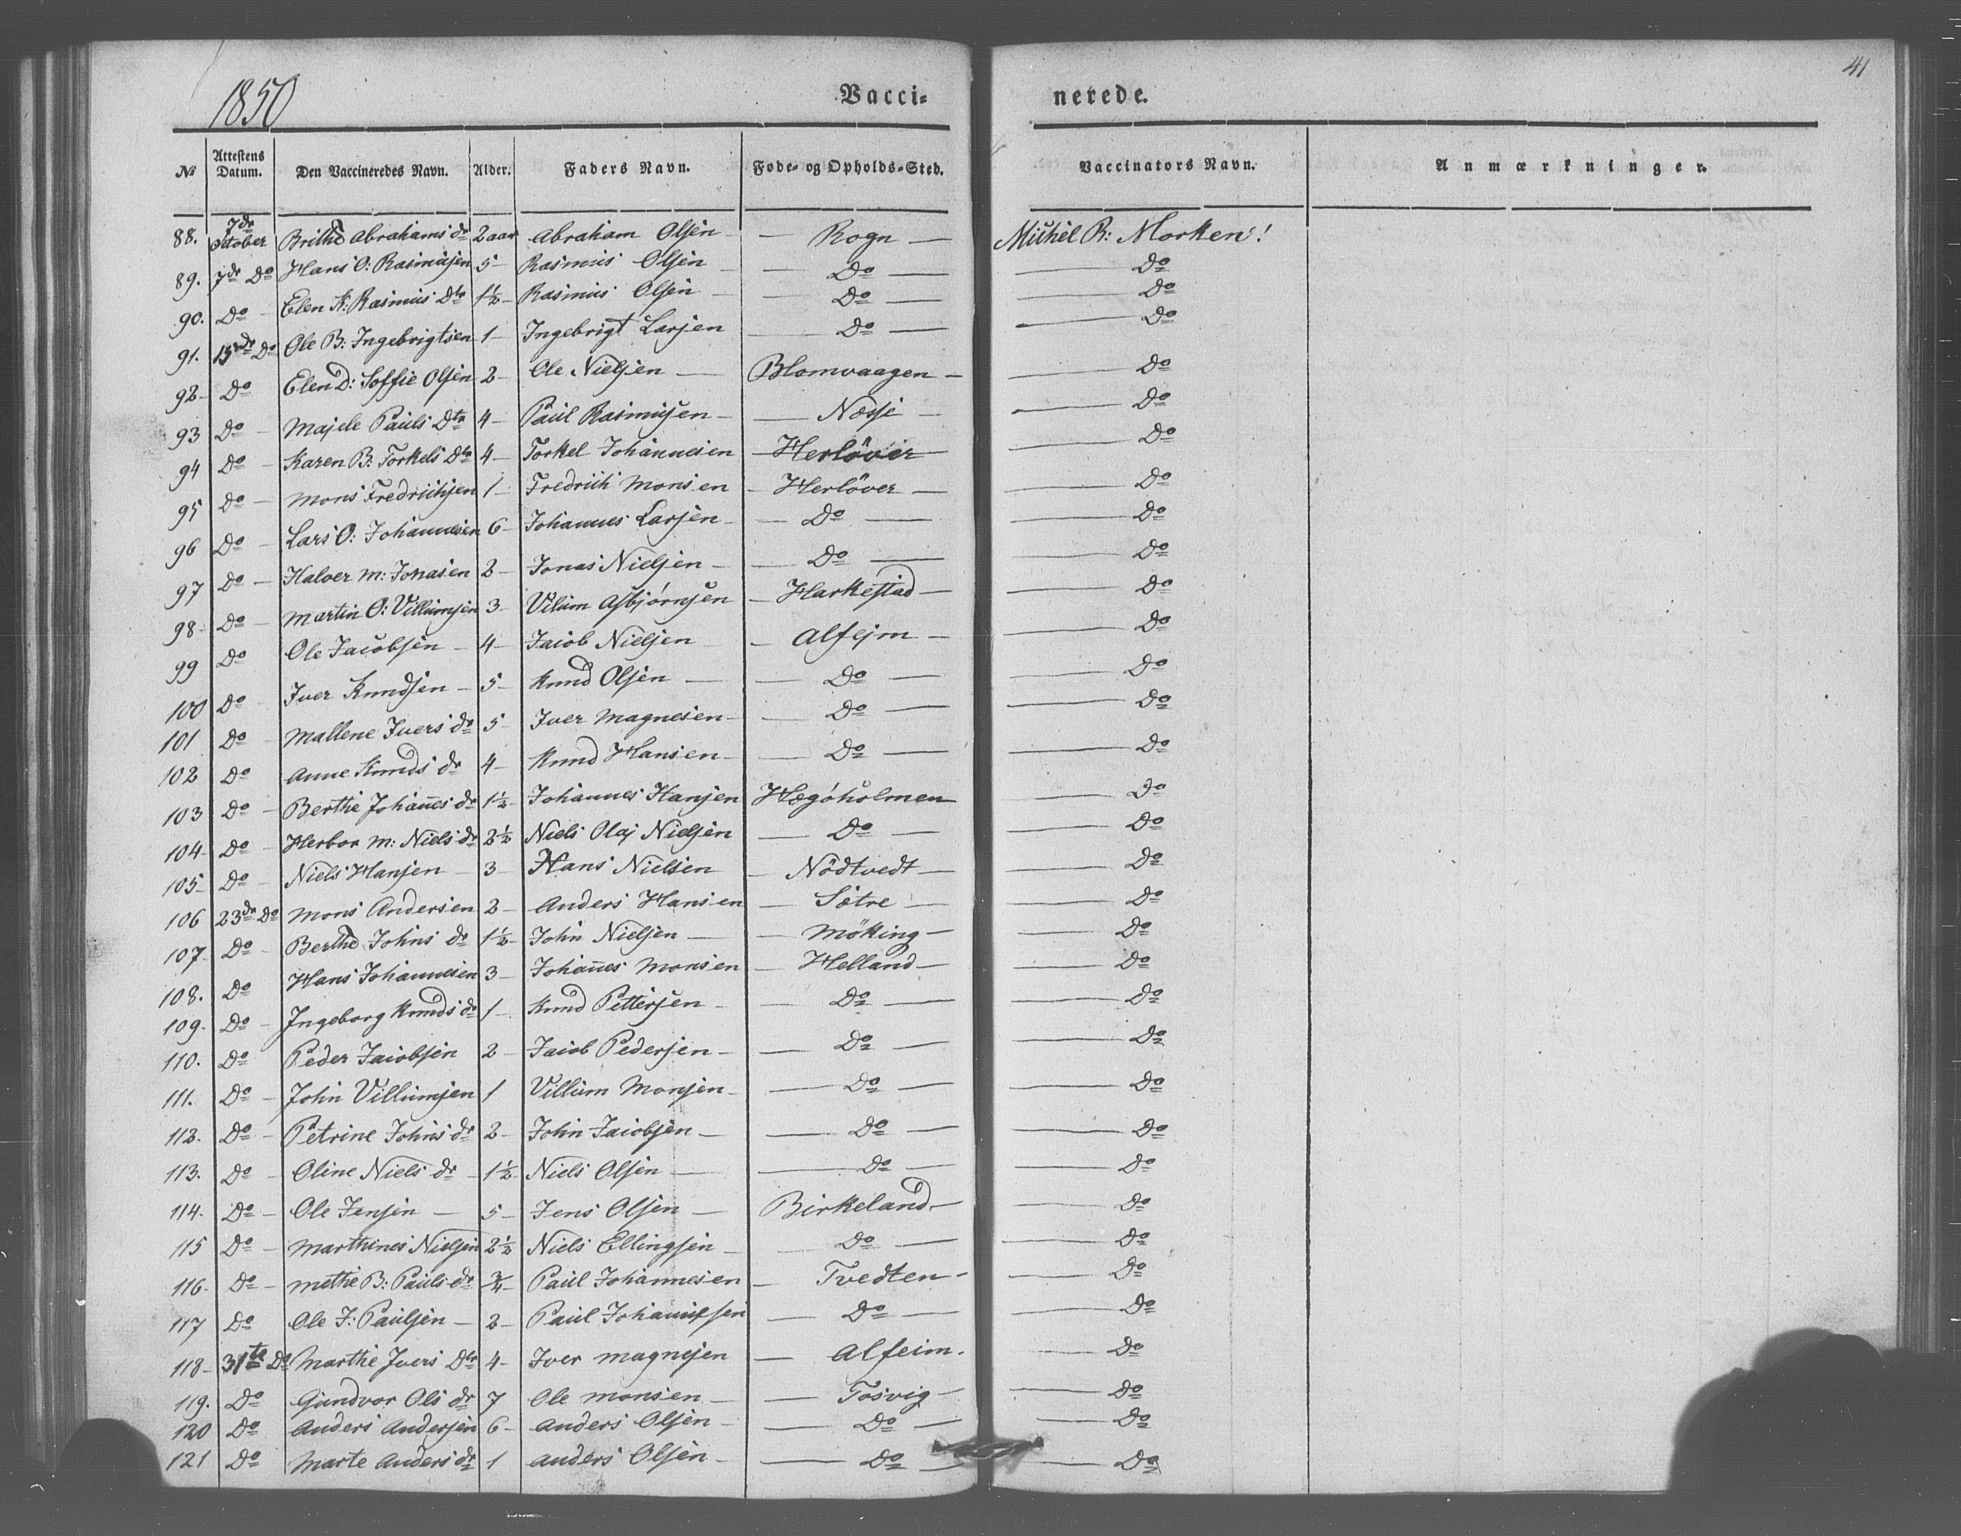 41
1850 Vacci= nerede.
№ Attestens Datum. Den Vaccineredes Navn. Alder. Faders Navn. Føde- og Opholds-Sted. Vaccinators Navn. Anmærkninger.
88. 7de October Brithe Abrahams dr 2 aar Abraham Olsen — Rogn — Michel R: Morken!
89. 7de Do Hans O: Rasmusen 5 — Rasmus Olsen — Do — Do
90. Do — Elen K: Rasmus Dtr 1½ — Rasmus Olsen — Do — Do
91. 15de Do Ole B: Ingebrigtsen 1 — Ingebrigt Larsen — Do — Do
92 — Do Elen D: Soffie Olsen 2 — Ole Nielsen — Blomvaagen — Do
93 Do — Majele Pauls Dtr 4 — Paul Rasmusen — Næsse — Do
94 Do — Karen B: Torkels Dtr 4 — Torkel Johannesen — Herlöver — Do
95 Do — Mons Fredrichsen 1 — Fredrich Monsen — Herlöver — Do
96 Do — Lars O: Johannesen 6 — Johannes Larsen — Do — Do
97 Do — Halver M: Jonasen 2 — Jonas Nielsen — Do — Do
98 — Do — Martin O: Villumsen 3 — Vilum Asbjørnsen — Harkestad — Do
99 Do Ole Jacobsen — 4 — Jacob Nielsen — Alfejm — Do
100 Do — Iver Knudsen — 5 — Knud Olsen — Do — Do
101 Do — Mallene Ivers dr 5 — Iver Magnesen — Do — Do
102 Do Anne Knuds dr 4 — Knud Hansen — Do — Do
103 Do — Berthe Johañes dr 1½ — Johannes Hansen Hægøholmen Do
104 — Do — Herbor M: Niels dr 2½ Niels Olaj Nielsen — Do — Do
105 — Do — Niels Hansen — 3 — Hans Nielsen — Nödtvedt — Do
106 23de Do Mons Andersen 2 — Anders Hansen — Sætre — Do
107 — Do — Berthe Johns dr 1½ — John Nielsen — Möking — Do
108. Do Hans Johannesen 3 — Johañes Monsen — Helland — Do
109. Do — Ingeborg Knuds dr 1 — Knud Pettersen — Do — Do
110. Do Peder Jacobsen 2 — Jacob Pedersen — Do — Do
111. Do — John Villumsen 1 Villum Monsen — Do — Do
112. Do — Petrine Johns dr 2 — John Jacobsen — Do — Do
113. Do — Oline Niels dr — 1½ Niels Olsen — Do — Do
114. Do — Ole Jensen — 5 — Jens Olsen — Birkeland — Do
115 Do — Marthines Nielsen 2½ Niels Ellingsen — Do — Do
116. Do — Methe B: Pauls dr ¾ Paul Johannesen — Tvedten — Do
117 Do Ole J: Paulsen — 2 — Paul Johannessen — Do — Do
118 — 31te Do Marthe Ivers Dtr 4 — Iver Magnesen — Alfeim. — Do
119. Do — Gundvor Ols dr 7 Ole Monsen — Tosvig — Do
120 Do Anders Andersen 6 — Anders Olsen — Do — Do
121 Do Marte Anders dr 1 Anders Olsen — Do — Do